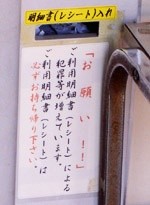 明細書(レシート)入れ
「お願い!!」
ご利用明細書(レシート)による
犯罪等が増えています。
ご利用明細書(レシート)は
必ずお持ち帰り下さい。